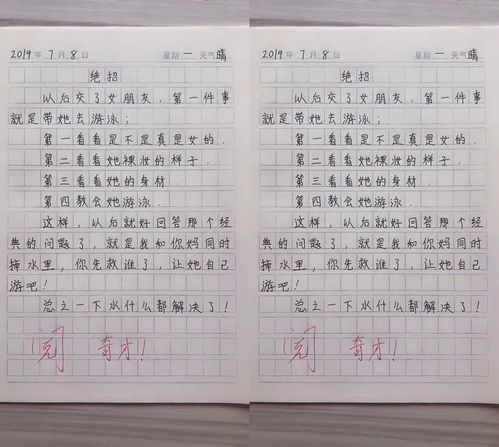 2019年7月8日 星期一 天气晴
绝招
以后交了女朋友，第一件事
就是带她去游泳；
第一看看是不是真是女的．
第二看看她裸妆的样子．
第三看看她的身材．
第四教会她游泳．
这样，以后就好回答那个经
典的问题了，就是我和你妈同时
掉水里，你先救谁了，让她自己
游吧！
总之一下水什么都解决了！
阅 奇才！
2019年7月8日 星期一 天气晴
绝招
以后交了女朋友，第一件事
就是带她去游泳；
第一看看是不是真是女的．
第二看看她裸妆的样子．
第三看看她的身材．
第四教会她游泳．
这样，以后就好回答那个经
典的问题了，就是我和你妈同时
掉水里，你先救谁了，让她自己
游吧！
总之一下水什么都解决了！
阅 奇才！